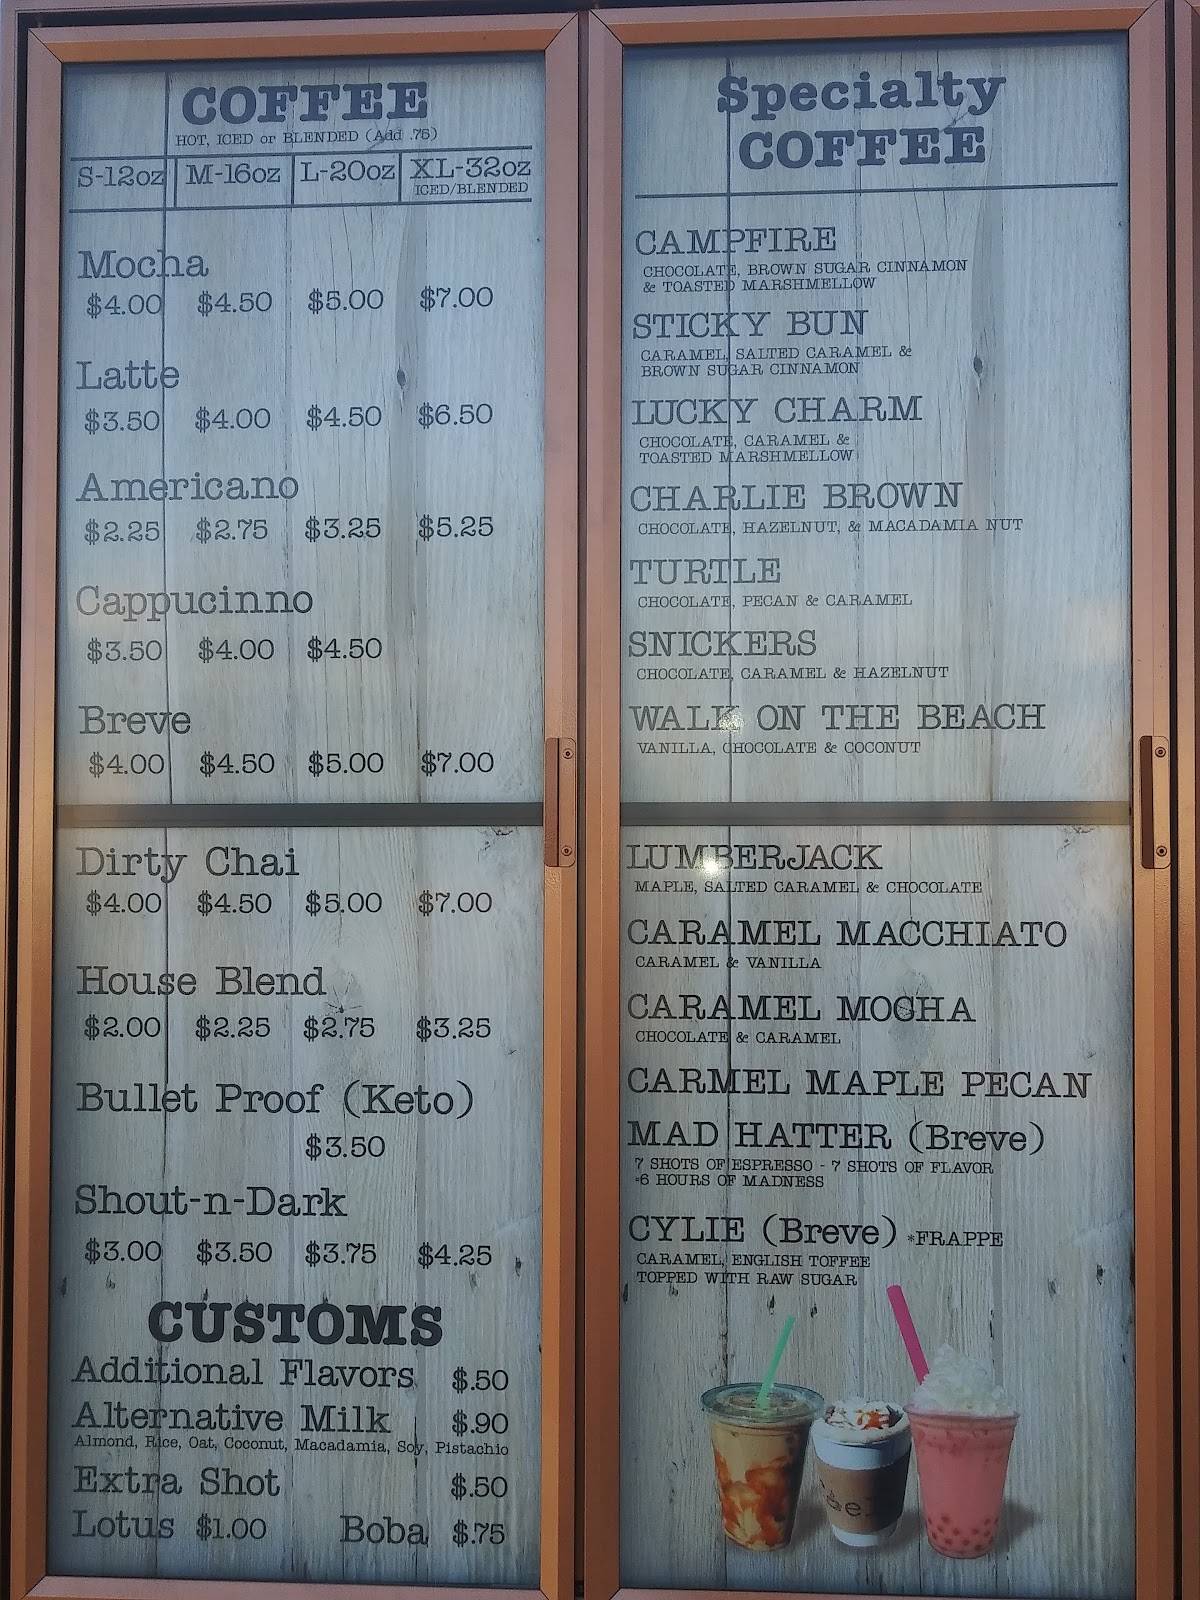 COFFEE
HOT, ICED or BLENDED (Add .75)
S-12oz M-16oz L-20oz XL-32oz
ICED/BLENDED
Mocha
$4.00 $4.50 $5.00 $7.00
Latte
$3.50 $4.00 $4.50 $6.50
Americano
$2.25 $2.75 $3.25 $5.25
Cappucinno
$3.50 $4.00 $4.50
Breve
$4.00 $4.50 $5.00 $7.00
Dirty Chai
$4.00 $4.50 $5.00 $7.00
House Blend
$2.00 $2.25 $2.75 $3.25
Bullet Proof (Keto)
$3.50
Shout-n-Dark
$3.00 $3.50 $3.75 $4.25
CUSTOMS
Additional Flavors $.50
Alternative Milk $.90
Almond, Rice, Oat, Coconut, Macadamia, Soy, Pistachio
Extra Shot $.50
Lotus $1.00 Boba $.75
Specialty
COFFEE
CAMPFIRE
CHOCOLATE, BROWN SUGAR CINNAMON
& TOASTED MARSHMELLOW
STICKY BUN
CARAMEL, SALTED CARAMEL &
BROWN SUGAR CINNAMON
LUCKY CHARM
CHOCOLATE, CARAMEL &
TOASTED MARSHMELLOW
CHARLIE BROWN
CHOCOLATE, HAZELNUT, & MACADAMIA NUT
TURTLE
CHOCOLATE, PECAN & CARAMEL
SNICKERS
CHOCOLATE, CARAMEL & HAZELNUT
WALK ON THE BEACH
VANILLA, CHOCOLATE & COCONUT
LUMBERJACK
MAPLE, SALTED CARAMEL & CHOCOLATE
CARAMEL MACCHIATO
CARAMEL & VANILLA
CARAMEL MOCHA
CHOCOLATE & CARAMEL
CARMEL MAPLE PECAN
MAD HATTER (Breve)
7 SHOTS OF ESPRESSO - 7 SHOTS OF FLAVOR
-6 HOURS OF MADNESS
CYLIE (Breve) *FRAPPE
CARAMEL, ENGLISH TOFFEE
TOPPED WITH RAW SUGAR